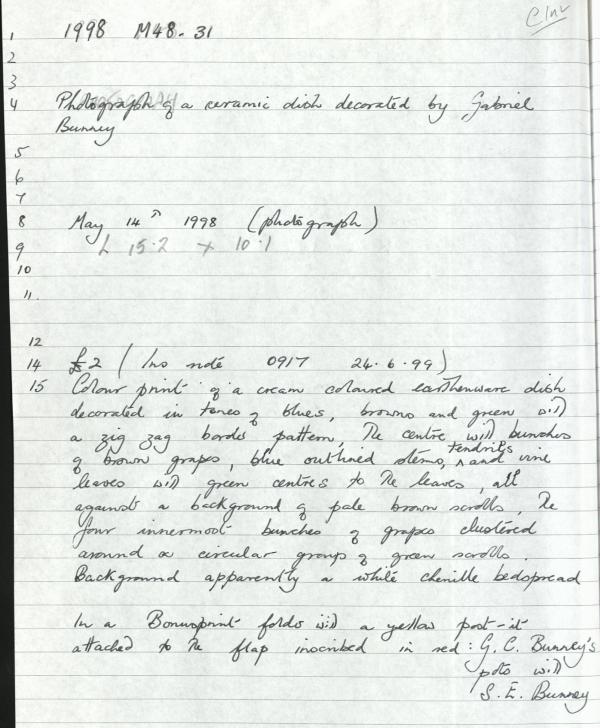 C Inv
1 1998 M48.31
2
3
4 Photograph of a ceramic dish decorated by Gabriel
Bunney
5
6
7
8 May 14th 1998 (photograph)
9 L 15.2 x 10.1
10
11.
12
14 £2 (Ins note 0917 24.6.99)
15 Colour print of a cream coloured earthenware dish
decorated in tones of blues, browns and green with
a zig zag border pattern, The centre with bunches
of brown grapes, blue outlined stems, tendrils and vine
leaves with green centres to the leaves, all
against a background of pale brown scrolls, the
four innermost bunches of grapes clustered
around a circular group of green scrolls.
Background apparently a white chenille bedspread
In a Bonusprint folder with a yellow post-it
attached to the flap inscribed in red: G.C. Bunney's
pots with
S.E. Bunney